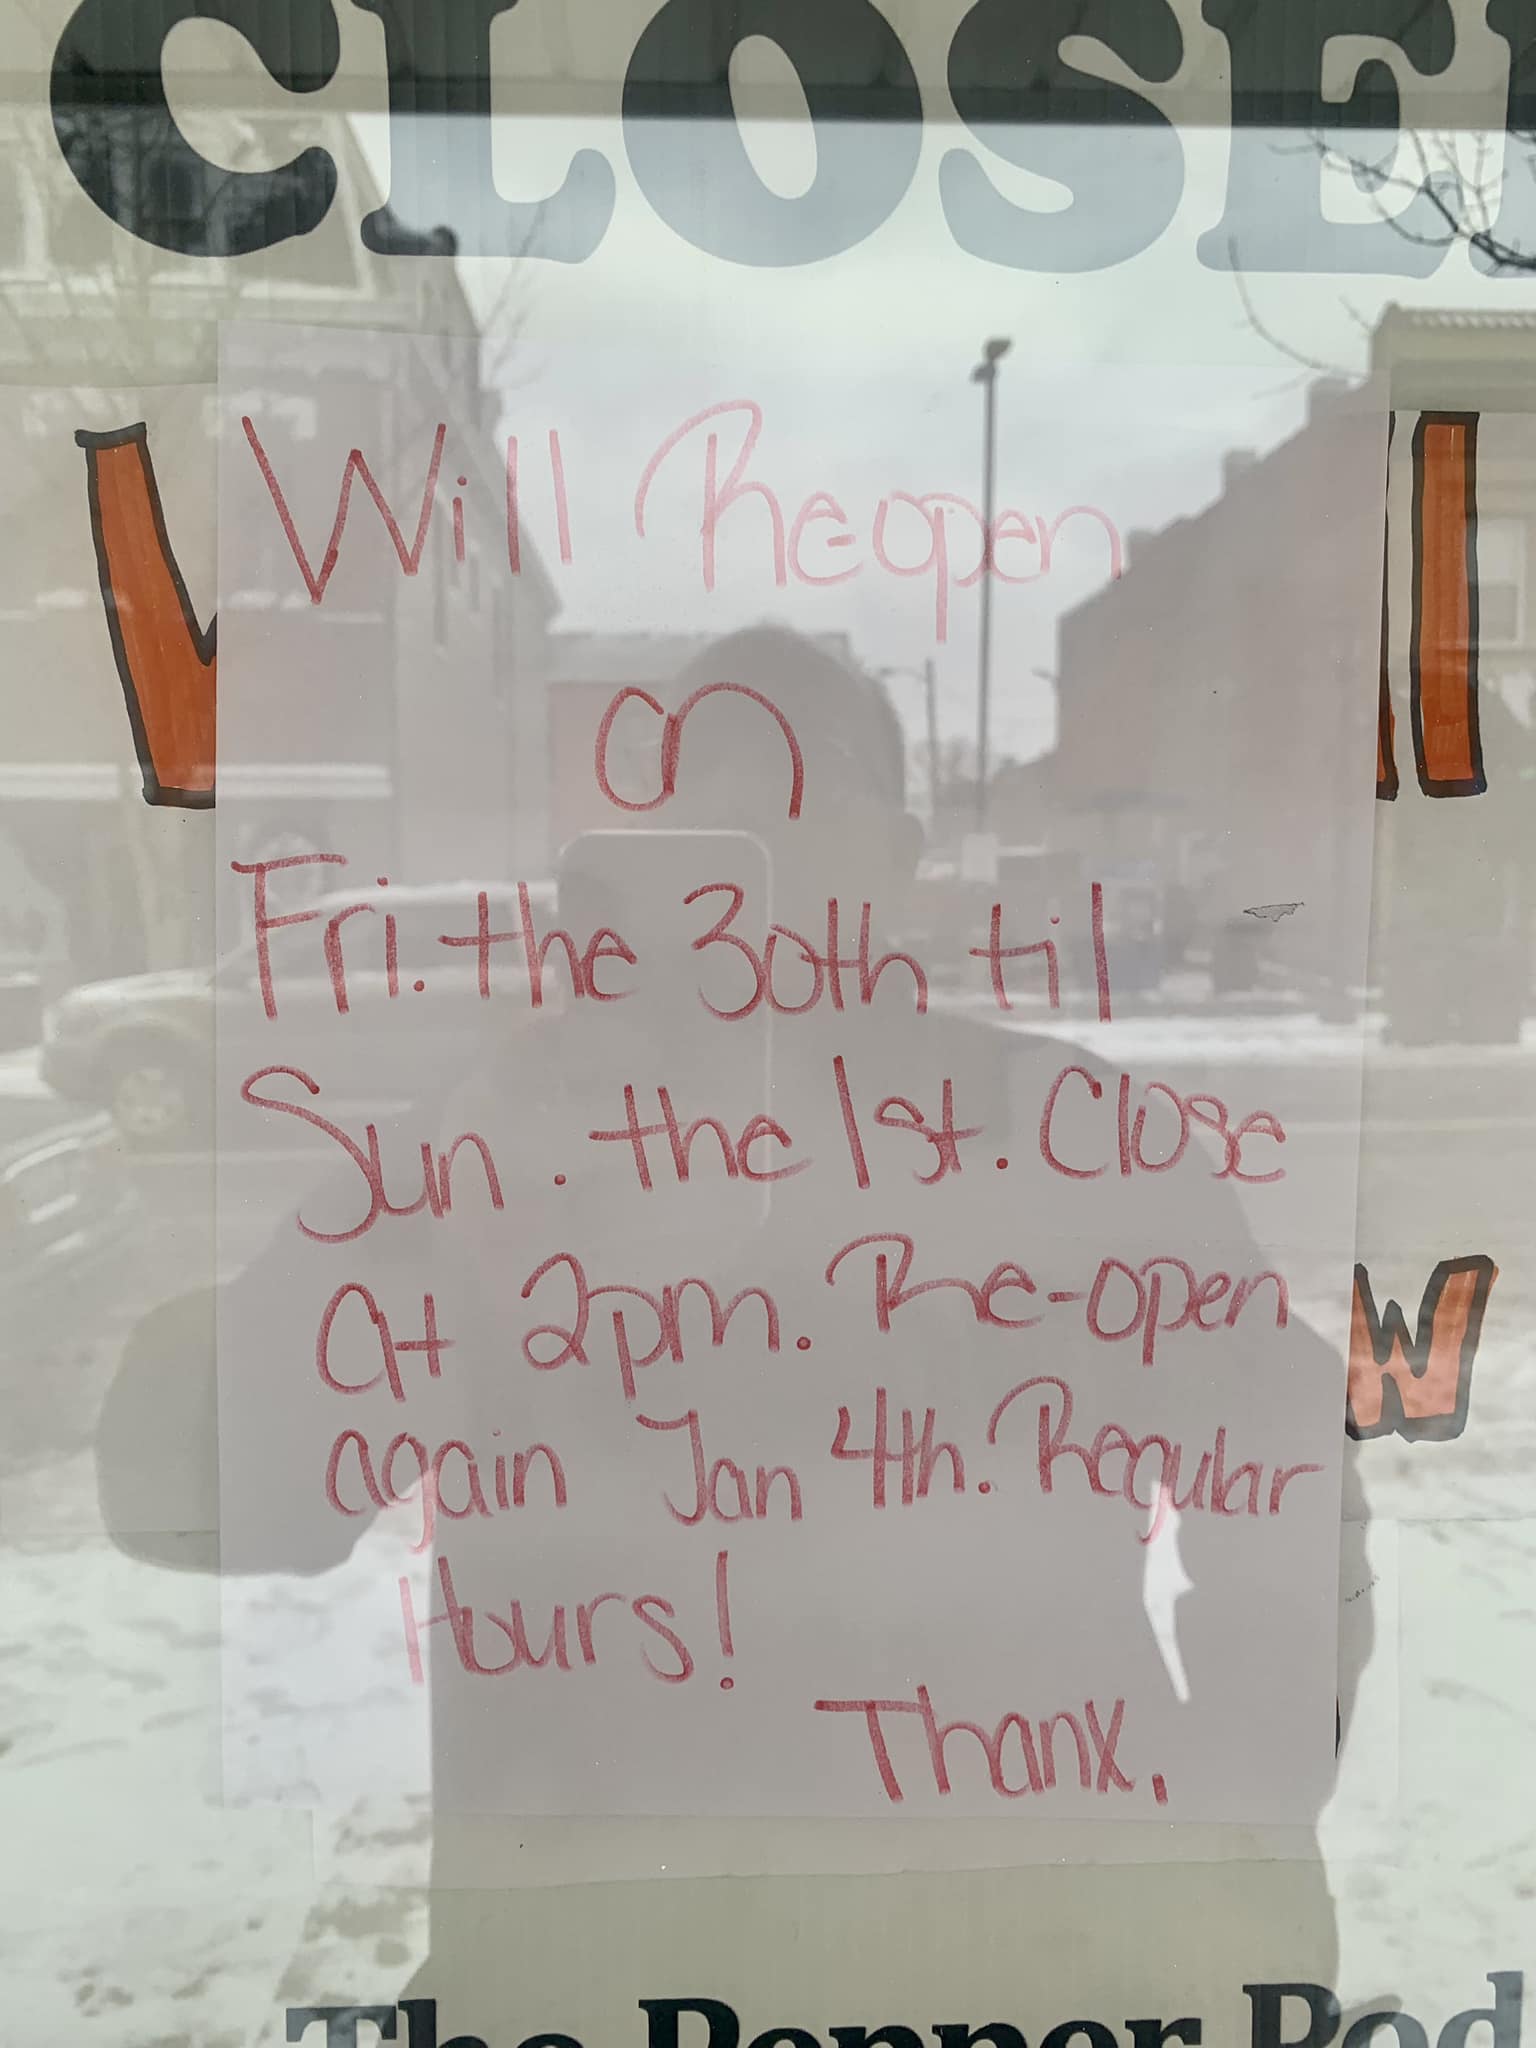 CLOSE
Will Re-open
on
Fri. the 30th til
Sun. the 1st. Close
at 2pm. Re-open
again Jan 4th. Regular
Hours!
Thanx.
W
The Pepper Pod